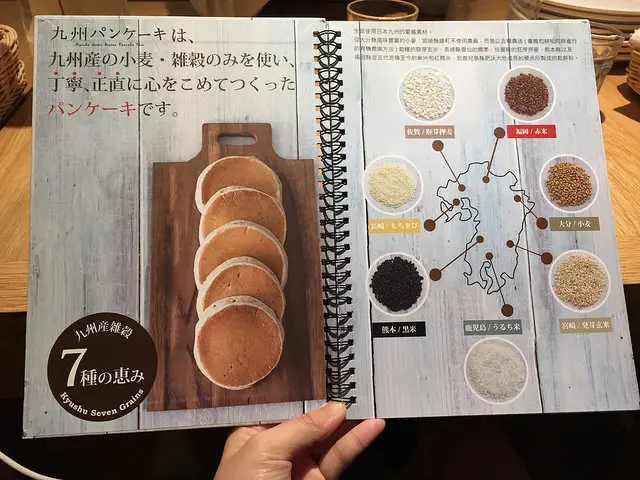 九州パンケーキは、
Kyushu Seven Grains Pancake Mix
九州産の小麦・雑穀のみを使い、
丁寧、正直に心をこめてつくった
パンケーキです。
九州産雑穀
7種の恵み
Kyushu Seven Grains
全部使用日本九州的嚴選素材。
佐賀/胚芽押麦
福岡/赤米
長崎/もちきび
大分/小麦
熊本/黒米
鹿児島/うるち米
宮崎/発芽玄米